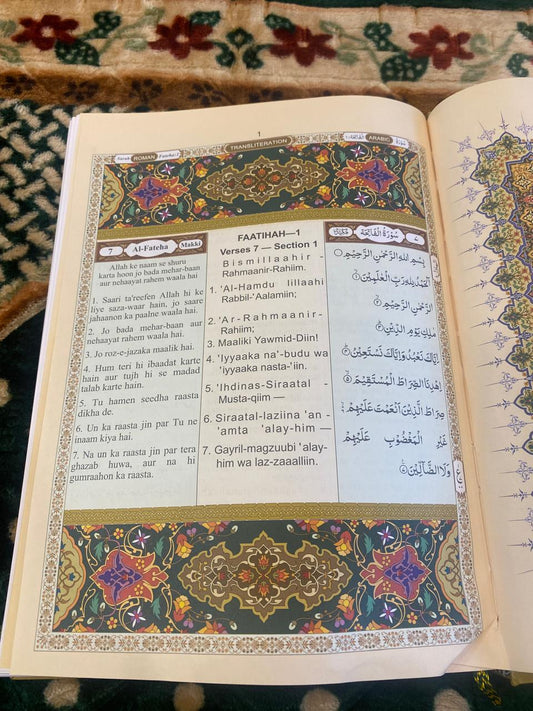 1
Surah ROMAN Fateha-1
TRANSLITERATION
سُوْرَةُ ARABIC الْفَاتِحَة-١
7 Al-Fateha Makki
Allah ke naam se shuru
karta hoon jo bada mehar-baan
aur nehaayat rahem waala hai
1. Saari ta'reefen Allah hi ke
liye saza-waar hain, jo saare
jahaanon ka paalne waala hai.
2. Jo bada mehar-baan aur
nehaayat rahem waala hai.
3. Jo roz-e-jazaka maalik hai.
4. Hum teri hi ibaadat karte
hain aur tujh hi se madad
talab karte hain.
5. Tu hamen seedha raasta
dikha de.
6. Un ka raasta jin par Tu ne
inaam kiya hai.
7. Na un ka raasta jin par tera
ghazab huwa, aur na hi
gumraahon ka raasta.
FAATIHAH—1
Verses 7 — Section 1
Bismillaahir -
Rahmaanir-Rahiim.
1. 'Al-Hamdu lillaahi
Rabbil-'Aalamiin;
2. 'Ar-Rahmaanir-
Rahiim;
3. Maaliki Yawmid-Diin!
4. 'Iyyaaka na'-budu wa
'iyyaaka nasta-'iin.
5. 'Ihdinas-Siraatal -
Musta-qiim —
6. Siraatal-laziina 'an -
'amta 'alay-him —
7. Gayril-magzuubi 'alay-
him wa laz-zaaalliin.
٧ سُوْرَةُ الْفَاتِحَةِ مَكِّيَّةٌ
بِسْمِ اللهِ الرَّحْمٰنِ الرَّحِيْمِ
اَلْحَمْدُ لِلهِ رَبِّ الْعٰلَمِيْنَ ١
الرَّحْمٰنِ الرَّحِيْمِ ٢
مٰلِكِ يَوْمِ الدِّيْنِ ٣
اِيَّاكَ نَعْبُدُ وَاِيَّاكَ نَسْتَعِيْنُ ٤
اِهْدِنَا الصِّرَاطَ الْمُسْتَقِيْمَ ٥
صِرَاطَ الَّذِيْنَ اَنْعَمْتَ عَلَيْهِمْ
غَيْرِ الْمَغْضُوْبِ عَلَيْهِمْ
وَلَا الضَّآلِّيْنَ